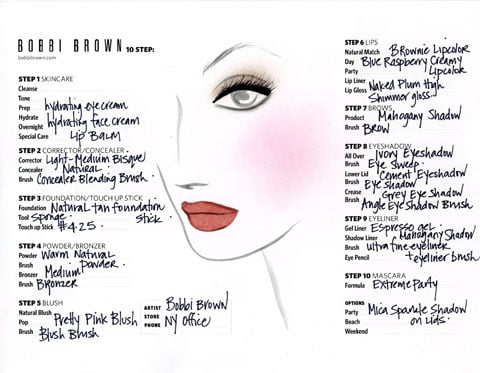 BOBBI BROWN 10 STEP:
bobbibrown.com
STEP 1 SKINCARE
Cleanse
Tone
Prep hydrating eye cream
Hydrate hydrating face cream
Overnight
Special Care Lip Balm
STEP 2 CORRECTOR/CONCEALER
Corrector Light-Medium Bisque
Concealer Natural
Brush Concealer Blending Brush.
STEP 3 FOUNDATION/TOUCH UP STICK
Foundation Natural tan foundation
Tool Sponge. stick.
Touch up Stick #4.25.
STEP 4 POWDER/BRONZER
Powder Warm Natural
Brush Powder.
Bronzer Medium
Brush Bronzer
STEP 5 BLUSH
Natural Blush
Pop Pretty Pink Blush
Brush Blush Blush
ARTIST Bobbi Brown
STORE NY Office
PHONE
STEP 6 LIPS
Natural Match Brownie Lipcolor
Day Blue Raspberry Creamy
Party Lipcolor
Lip Liner Naked Plum High
Lip Gloss Shimmer gloss
STEP 7 BROWS
Product Mahogany Shadow
Brush Brow
STEP 8 EYESHADOW
All Over Ivory Eyeshadow
Brush Eye Sweep
Lower Lid Cement Eyeshadow
Brush Eye Shadow
Crease Grey Eye Shadow
Brush Angle Eye Shadow Brush
STEP 9 EYELINER
Gel Liner Espresso gel.
Shadow Liner Mahogany Shadow
Brush ultra fine eyeliner
Eye Pencil + eyeliner brush
STEP 10 MASCARA
Formula Extreme Party
OPTIONS
Party Mica Sparkle Shadow
Beach on Lids.
Weekend